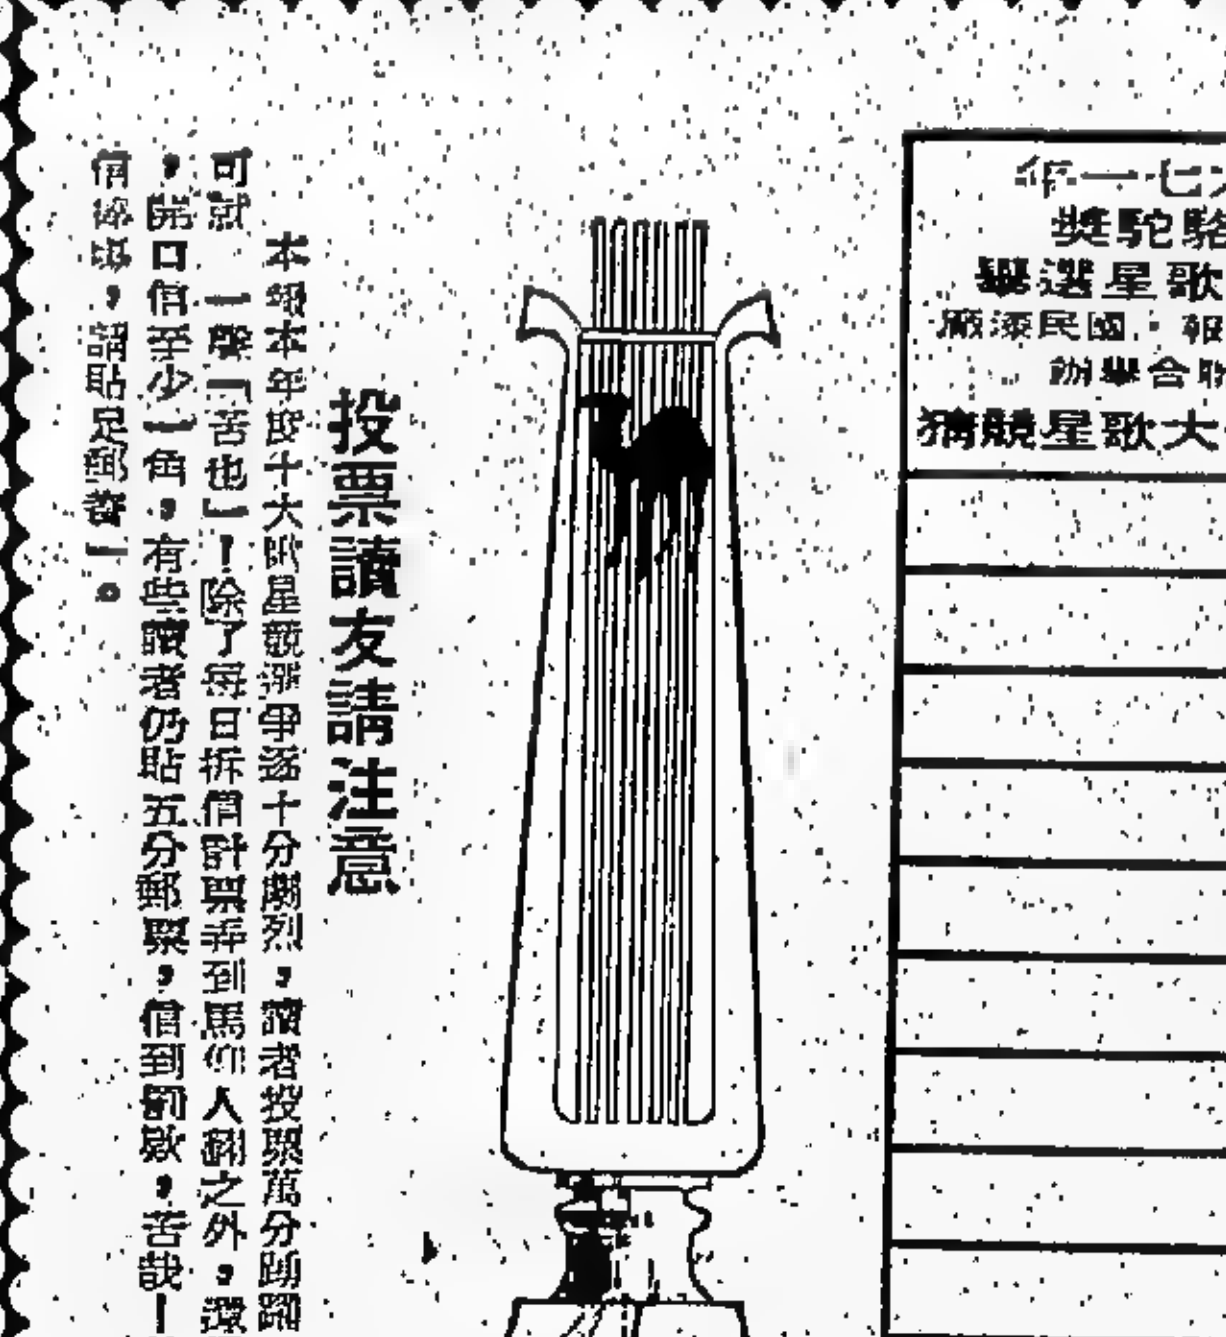 年一七
獎駝駱
舉選星歌
廠漆民國 報
辦舉合聯
猜競星歌大
投票讀友請注意
本報本年度十大歌星競選爭逐十分劇烈，讀者投票萬分踴躍
可就一聲「苦也」！除了每日拆信計票弄到馬仰人翻之外，還
，開口信至少一角，有些讀者仍貼五分郵票，信到罰款，苦哉！
信，請貼足郵資」。